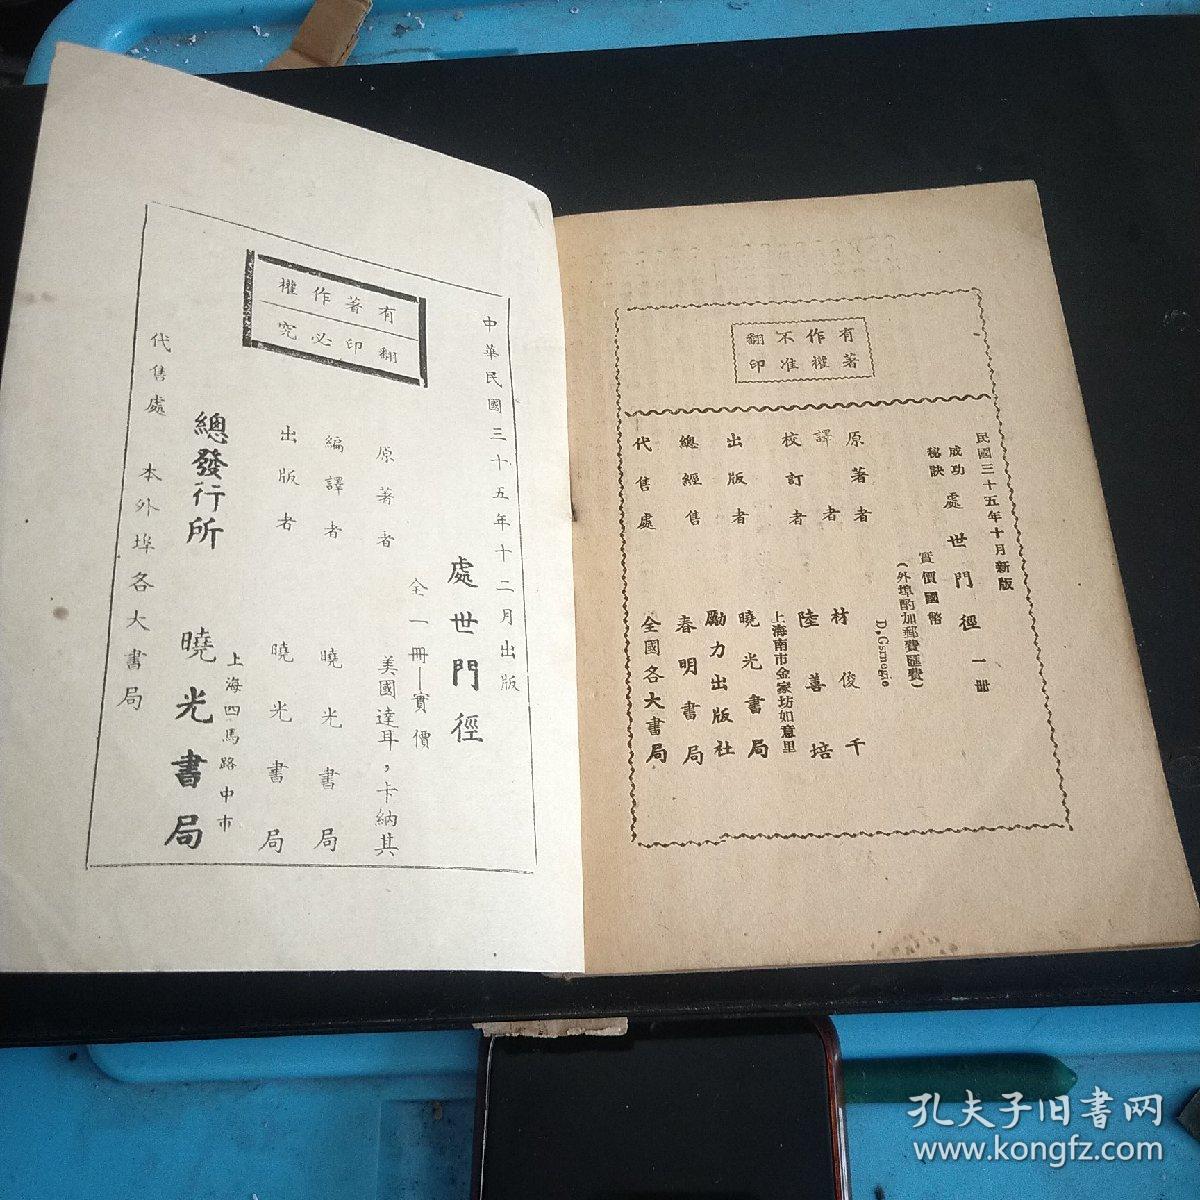 有著作權
翻印必究
中華民國三十五年十二月出版
處世門徑
全一冊—實價
原著者 美國達耳,卡納其
編譯者 曉光書局
出版者 曉光書局
總發行所 曉光書局
上海四馬路中市
代售處 本外埠各大書局
有著作權不准翻印
民國三十五年十月新版
成功秘訣 處世門徑 一冊
實價國幣
(外埠酌加郵費匯費)
原著者 D. Carnegie
譯者 林俊千
校訂者 陸善培
上海南市金家坊如意里
出版者 曉光書局
勵力出版社
總經售 春明書局
代售處 全國各大書局
孔夫子旧书网
www.kongfz.com